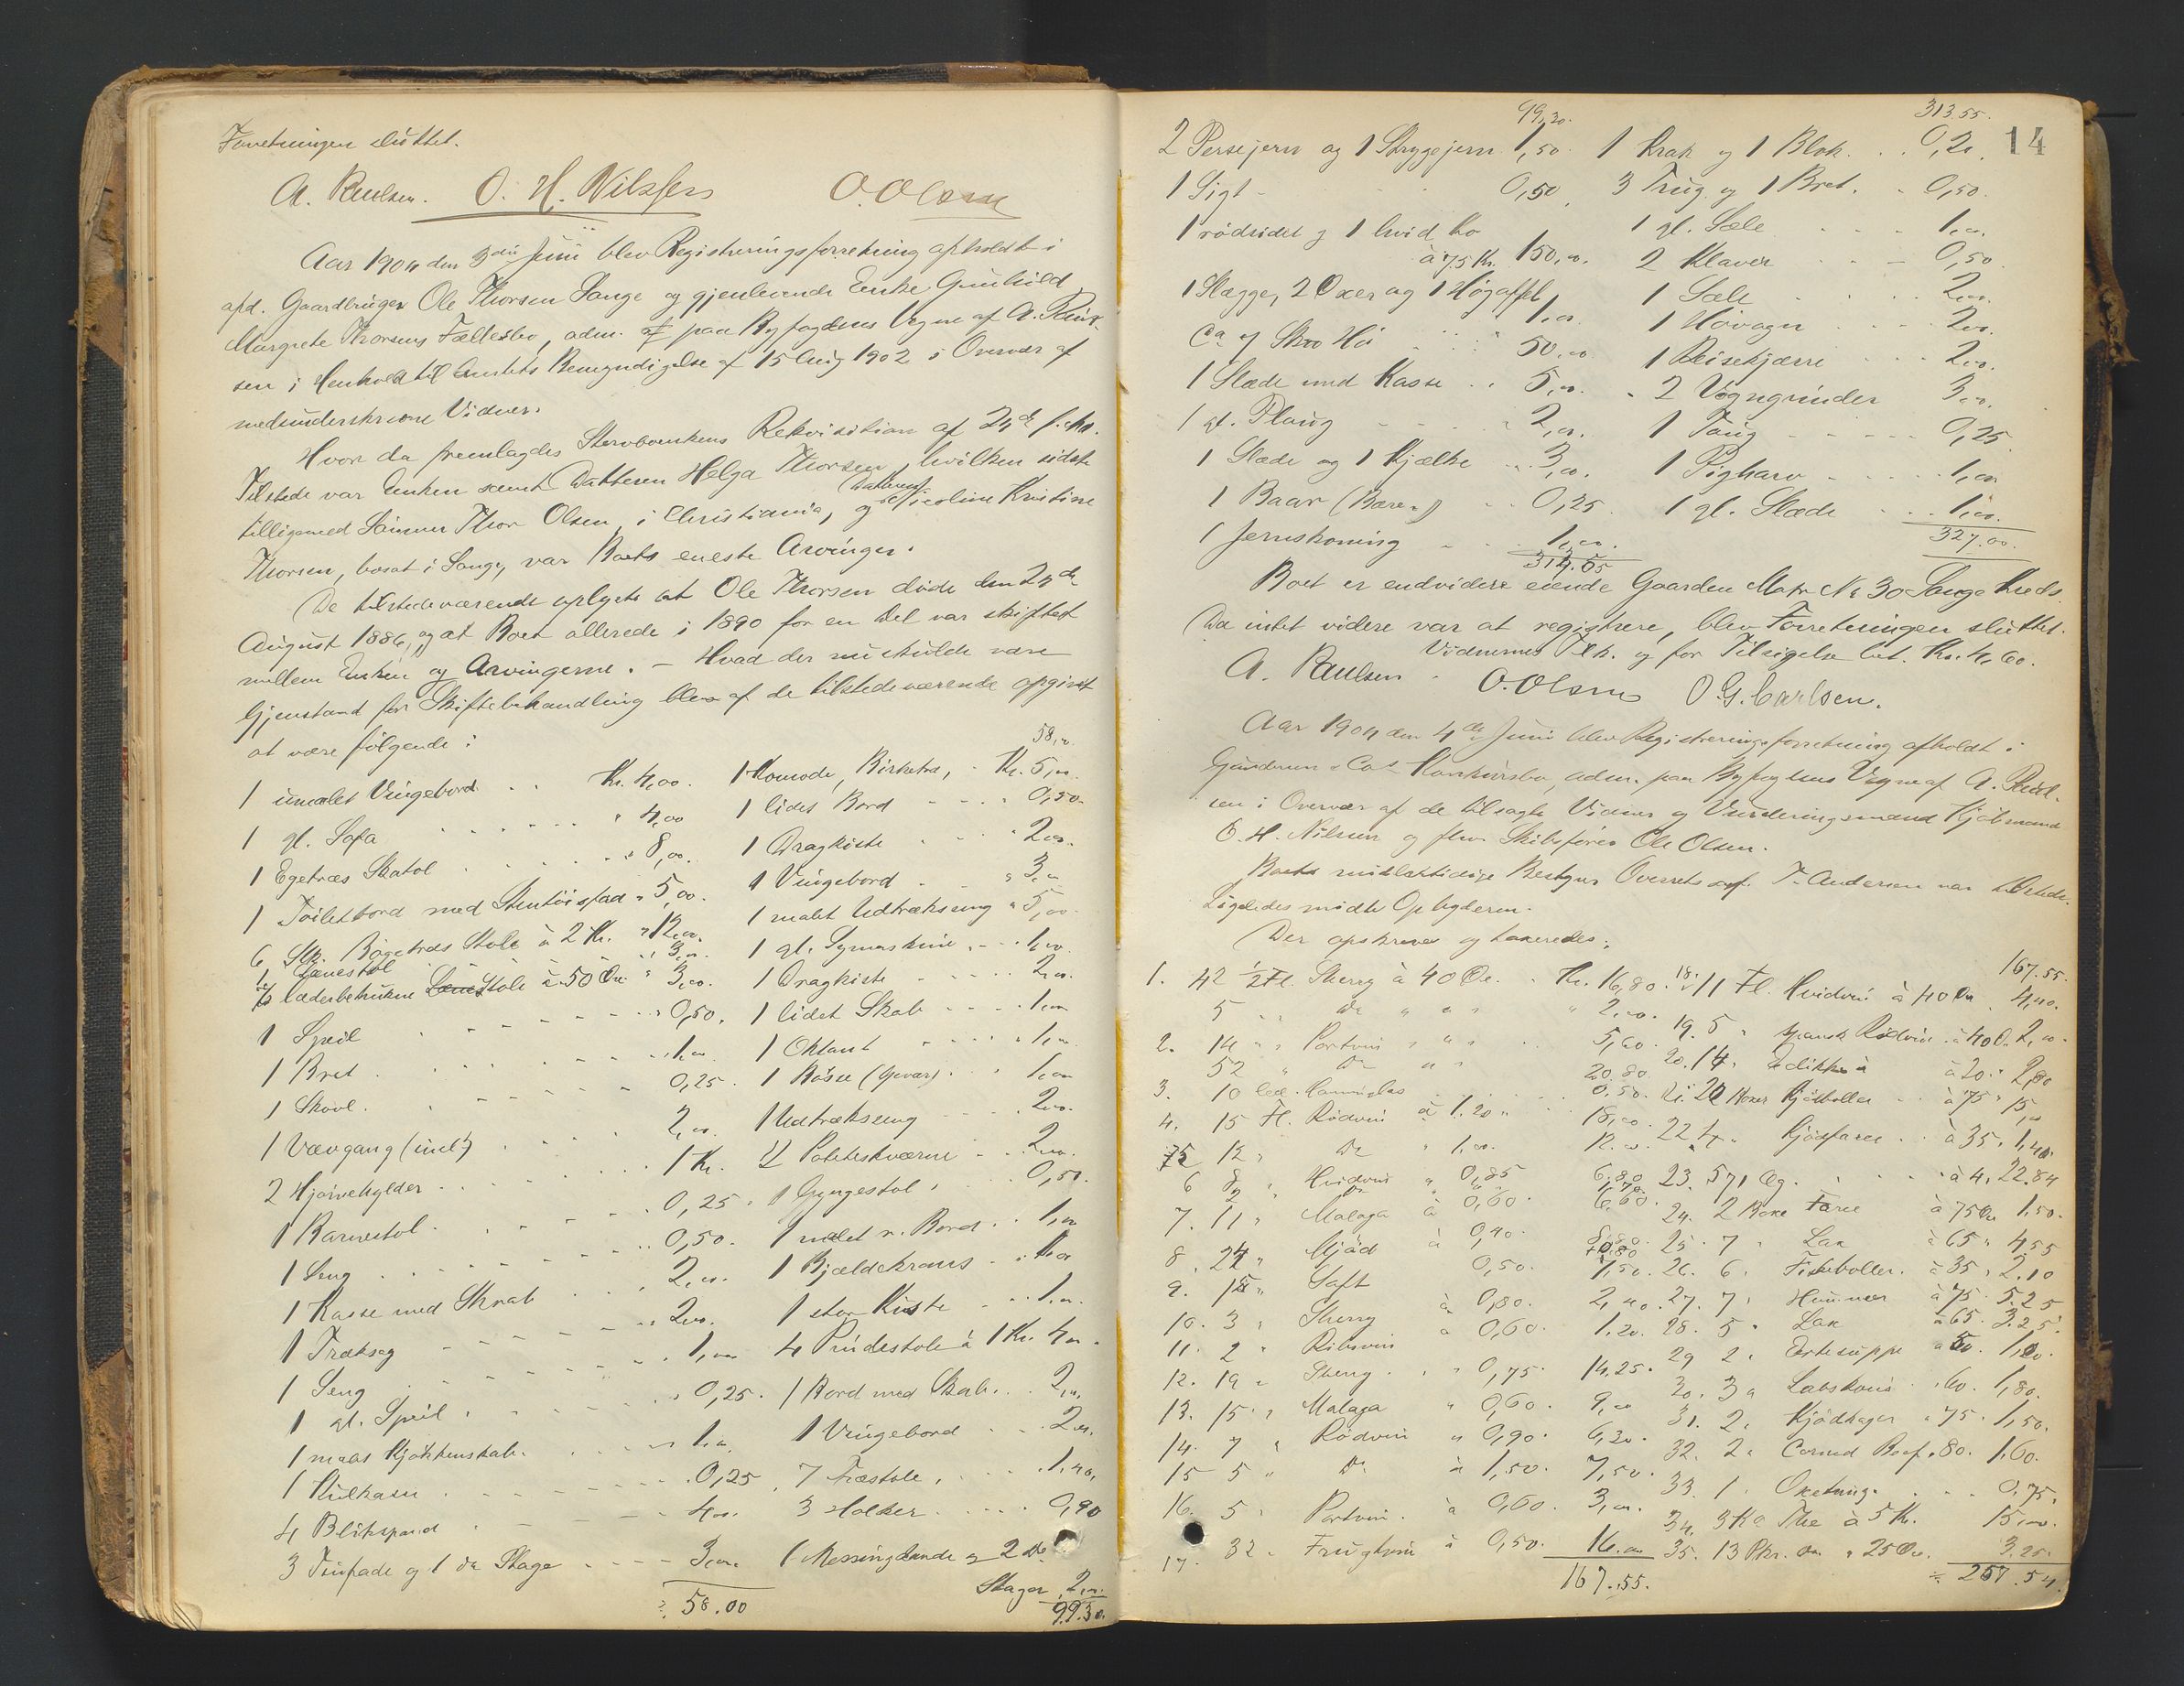 Forretningen sluttet.
A. Paulsen. O. H. Nilssen O. Olsen
Aar 1904 den 3die Juni blev Registreringsforretning afholdt i
afd. Gaardbruger Ole Thorsen Sange og gjenlevende Enke Gunhild
Margrete Thorsens Fællesbo, adm. paa Byfogdens Vegne af A. Paul-
sen i Henhold til Amtets Bemyndigelse af 15 Aug 1902 i Overvær af
medunderskrevne Vidner.
Hvor da fremlagdes Stervboenkens Rekvisition af 24de f. M.
Tilstede var Enken samt Datteren Helga Thorsen, hvilken sidste
tilligemed Sønnen Thor Olsen, i Christiania, og Datteren Nicoline Kristine
Thorsen, bosat i Sange, var Boets eneste Arvinger.
De tilstedeværende oplyste at Ole Thorsen døde den 24de
August 1886, og at Boet allerede i 1890 for en Del var skiftet
mellem Enken og Arvingerne. – Hvad der nu skulde være
Gjenstand for Skiftebehandling blev af de tilstedeværende opgivet
at være følgende:
58,00
1 umalet Vingebord . . Kr. 4,00. 1 Komode, Birketræ, - Kr. 5,00.
1 gl. Sofa . . . " 4,00 1 lidet Bord - - - " 0,50.
1 Egetræs Skatol . . . " 8,00. 1 Dragkiste - . . " 2,00.
1 Toiletbord med Stentøisfad " 5,00. 1 Vingebord - . " 3,00
6 Stk. Bøgetræs Stole à 2 Kr. " 12,00. 1 malet Udtræksseng " 5,00
1 Lænestol . . " 3,00. 1 gl. Symaskine . - . 1,00
læderbetrukne Stole à 50 Øre " 3,00. 1 Dragkiste . - . . . 2,00.
1 Speil . . . " 0,50. 1 lidet Skab - - - . 1,00
1 Bret . . . " 1,00. 1 Oktant . . . " 1,00
1 Skovl. . . . 0,25. 1 Bøsse (Gevær) . . 1,00
1 Vævgang (incl) . . . 2,00. 1 Udtræksseng . . . 2,00.
2 Hjørnehylder . . . 1 Kr. Poteteskværne . . 2,00.
1 Barnestol . . . 0,25. 1 Gyngestol . . . 0,50.
1 Seng . . . 0,50. 1 malet r. Bord . . 1,00
1 Kasse med Skrab . . . 2,00. 1 Bjældekrans . .
1 Træksag . . . 2,00. 1 stor Kiste - . . 1,00.
1 Seng . . . 1,00 4 Pindestole à 1 Kr. 4,00.
1 gl. Speil . . . 0,25. 1 Bord med Skab. . . 2,00.
1 malet Kjøkkenskab. . . . 1,00. 1 Vingebord . . . 2,00.
1 Kulkasse . . . 0,25. 7 Træstole . . . . 1,40.
4 Blikspand . . . 4,00. 3 Holker . . . . 0,90
3 Tinfade og 1 do Stage . . . 3,00. 1 Messingkande og 2 do
Stager 2,00.
58.00 99.30.
14
99,30. 313.55.
2 Persejern og 1 Strygejern 1,50. 1 Krak og 1 Blok. . . 0,20.
1 Sigt - . . 0,50. 3 Trug og 1 Bret. . 0,50.
1 rødsidet og 1 hvid ko 1 gl. Sæle . . . . 1,00.
à 75 Kr. 150,00. 2 Klaver . . - 0,50.
1 Slægge, 2 Øxer og 1 Høgaffel 1 Sæle . . . 2,00.
1,00. 1 Høvogn . . . 2,00.
Ca 7 Skpd Hø . . . 50,00 1 Reisekjærre . . . 2,00.
1 Slæde med Kasse . . 5,00. 2 Vogngrinder 3,00.
1 gl. Plaug - - - - 2,00. 1 Taug - - - - - 0,25
1 Slæde og 1 Kjælke . . . 3,00. 1 Pigharv - . . . . 1,00
1 Baar (Bære) . . . 0,25. 1 gl. Slæde . . . . 1,00.
1 Jernskoning - . . 1,00. 327.00.
314.55
Boet er endvidere eiende Gaarden Matr. No 30 Sange Kreds.
Da intet videre var at registrere, blev Forretningen sluttet.
Vidnernes og for Tilsigelse bet. Kr. 4,60.
A. Paulsen . O. Olsen O. G. Carlsen.
Aar 1904 den 4de Juni blev Registreringsforretning afholdt i
Gundersen & Cos Konkursbo, adm. paa Byfogdens Vegne af A. Paul-
sen i Overvær af de tilsagte Vidner og Vurderingsmænd Kjøbmand
O. H. Nilssen og fhv. Skibsfører Ole Olsen.
Boets midlertidige Bestyrer Overretssagf. T. Andersen var tilstede.
Ligeledes mødte Opbyderen.
Der opskreves og taxeredes;
167.55.
1. 42 1/2 Fl. Sherry à 40 Øre. . Kr. 16,80. 18. 11 Fl. Hvidvin à 40 Øre . 4,40.
5 . . Do " " " " 2,00. 19. 5 " spansk Rødvin . à 40 Ø. 2,00.
2. 14 " " Portvin " " " . . 5,60. 20. 14 " Edikke à à 20 " 2,80
52 " Do " " 20,80 21. 20 Boxer Kjødboller . . à 75 " 15,00
3. 10 . . . 0,50. 22. 4 " Kjødfarce . . à 35. 1,40.
4. 15 Fl. Rødvin à 1.20 " 18,00. 23. 571 Æg. . . . . à 4. 22.84
5 12 " Do " 1.00. 12.00. 24. 2 Boxe Farce à 75 Øre 1.50.
6 8 " Hvidvin " 0,85 6.80 25. 7 " Lax à 65 " 4.55
2 " Do " 1,70. 26. 6 " Fiskeboller. à 35 " 2.10
7. 11 " Malaga à 0,60. 6.60. 27. 7 " Hummer à 75. 5.25
8. 22 " Mjød à 0,40. 8,80. 28. 5 " Lax à 65. 3.25.
9. " Saft 0,50. 29 2 " Ertesuppe à 50. 1,00.
10. 3 " Sherry à 0,80. 2,40. 30. 3 " Labskous . 60. 1,80.
11. 2 " Ribsvin à 0,60. 1.20. 31. 2 " Kjødkager " 75. 1,50.
12. 19 " Sherry . . " 0,75. 14.25. 32. 2 " Corned Beef . 80. 1,60.
13. 15 " Malaga " 0,60. 9,00 33. 1 " Oxetunge . . . 0,75.
14. 7 " Rødvin " 0,90. 6,30. 34. 3 Ko The à 5 Kr. 15,00.
15 5 " Do à 1,50. 7,50. 35. 13 Pkr. Do " 25 Øre. 3.25.
16. 5 " Portvin. à 0,60. 3,00. 257.54.
17. 32 " Frugtvin à 0,50. 16.00
167.55.